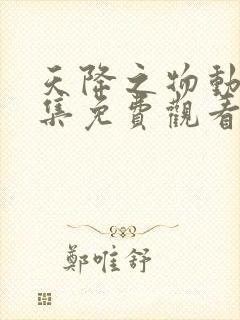 天降之物動
集免費觀看
鄭唯舒